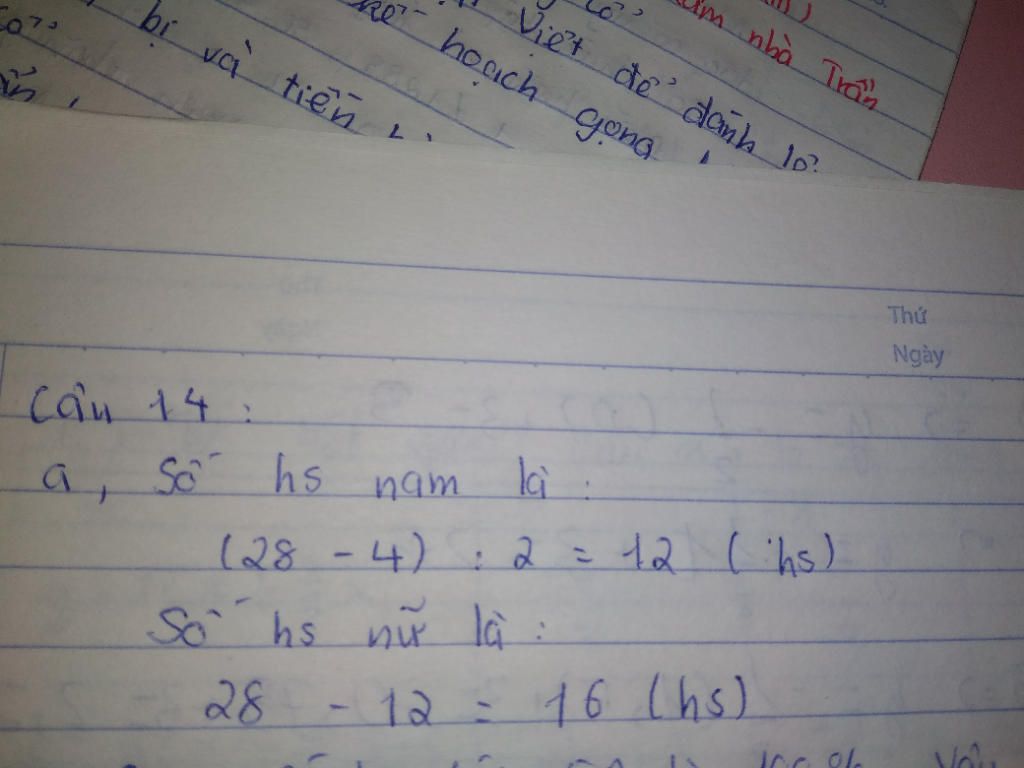 làm nhà Trần
Việt để đánh
kế hoạch gọng
bị và tiến
Thứ
Ngày
Câu 14 :
a, Số hs nam là :
(28 - 4) : 2 = 12 (hs)
Số hs nữ là :
28 - 12 = 16 (hs)
100%